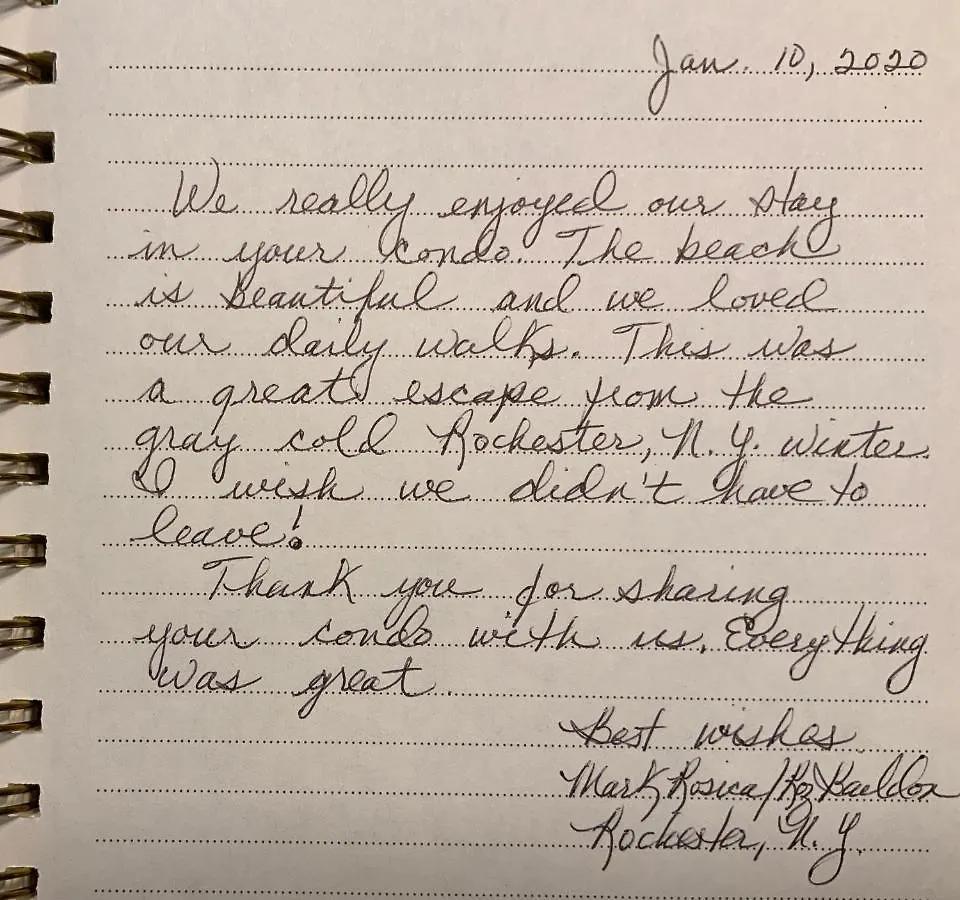 Jan. 10, 2020
We really enjoyed our stay
in your condo. The beach
is beautiful and we loved
our daily walks. This was
a great escape from the
gray cold Rochester, N.Y. winter.
I wish we didn't have to
leave!
Thank you for sharing
your condo with us. Everything
was great.
Best wishes
Mark Rosica/Roz
Rochester, N.Y.